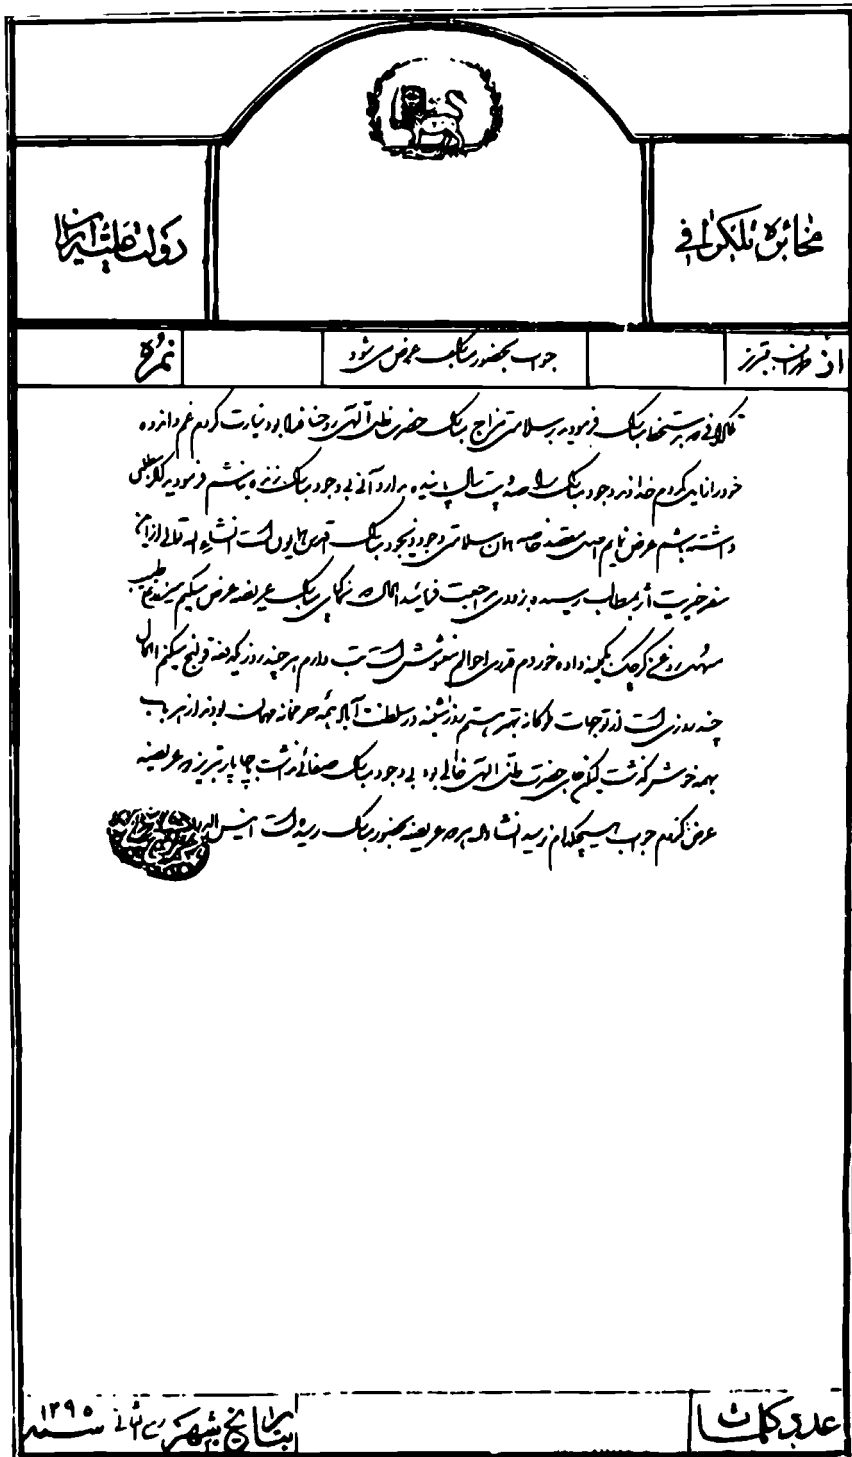 مخابره تلگرافی
دولت علیه ایران
از طهران به تبریز
جواب بحضور مبارک عرض می شود
نمره
تلگرافی که بدستخط مبارک فرموده بر سلامتی مزاج مبارک حضرت ظل اللهی روحنا فداه بود زیارت کردم غم و اندوه
خود را زایل کردم خداوند وجود مبارک را صد و بیست سال پاینده بدارد آنی بی وجود مبارک زنده نباشم فرمودید اگر مطلبی
داشته باشم عرض نمایم اصل مقصد خاصه همان سلامتی وجود مبارک اقدس همایون است انشاء الله تعالی از این
سفر خیریت اثر بمطالب رسیده بزودی مراجعت فرمائید الحال که بخاکپای مبارک عریضه عرض میکنم طبیب
مسهل روغن کرچک بکمینه داده خوردم قدری احوالم مغشوش است تب دارم هر چند روز یکدفعه قولنج میکنم الحال
چند روزی است از توجهات ملوکانه بهتر هستم روز شنبه در سلطنت آباد همه حرمخانه مهمان بودند از هر باب
بهمه خوش گذشت لیکن جای حضرت ظل اللهی خالی بود بی وجود مبارک صفائی نداشت چاپار تبریز دو عریضه
عرض کردم جواب هیچکدام نرسید انشاء الله هر دو عریضه بحضور مبارک رسیده است انیس الدوله
عدد کلمات
بتاریخ شهر ربیع الثانی سنه ۱۲۹۵